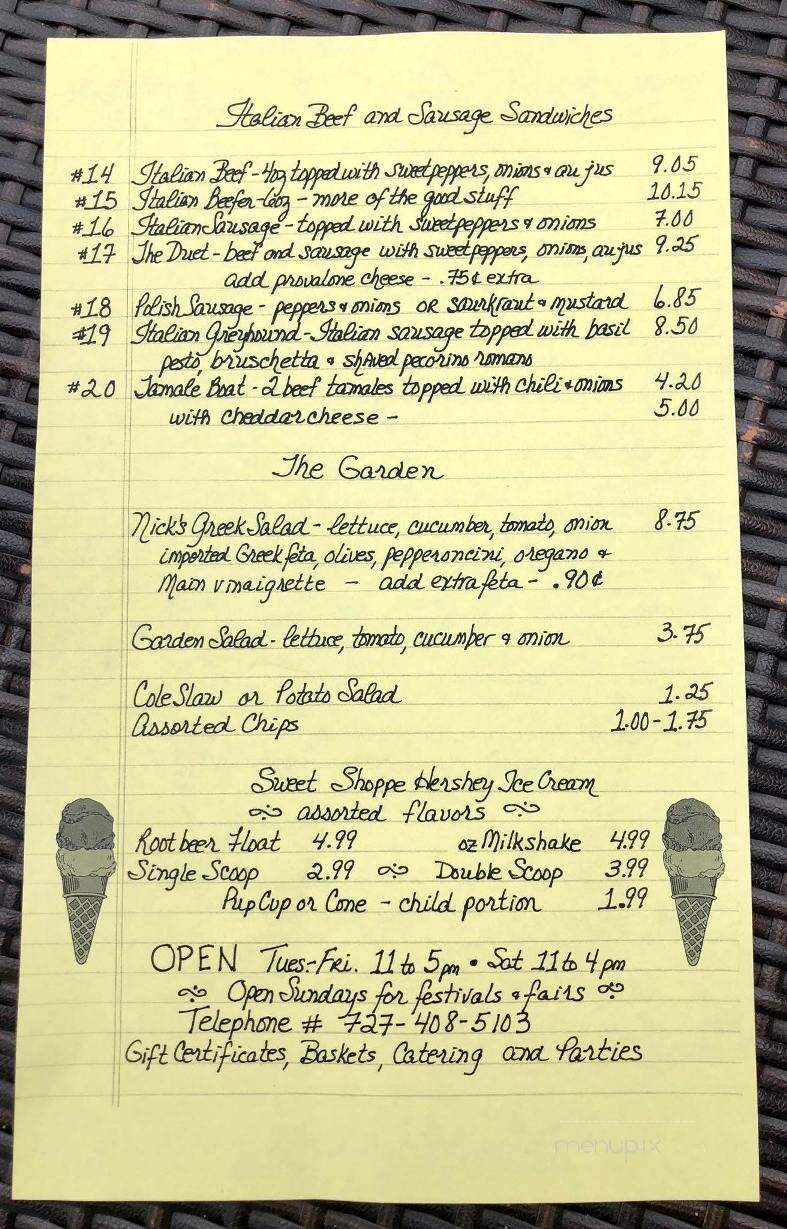 Italian Beef and Sausage Sandwiches
#14 Italian Beef - 4oz topped with sweet peppers, onions & au jus 9.05
#15 Italian Beefer - 6oz - more of the good stuff 10.15
#16 Italian Sausage - topped with sweet peppers & onions 7.00
#17 The Duet - beef and sausage with sweet peppers, onions, au jus 9.25
add provalone cheese - .75¢ extra
#18 Polish Sausage - peppers & onions OR saurkraut & mustard 6.85
#19 Italian Greyhound - Italian sausage topped with basil 8.50
pesto, bruschetta & shaved pecorino romano
#20 Tamale Boat - 2 beef tamales topped with chili & onions 4.20
with cheddar cheese - 5.00
The Garden
Nick's Greek Salad - lettuce, cucumber, tomato, onion 8.75
imported Greek feta, olives, pepperoncini, oregano &
Main vinaigrette - add extra feta - .90¢
Garden Salad - lettuce, tomato, cucumber & onion 3.75
Cole Slaw or Potato Salad 1.25
Assorted Chips 1.00-1.75
Sweet Shoppe Hershey Ice Cream
assorted flavors
Root beer Float 4.99 oz Milkshake 4.99
Single Scoop 2.99 Double Scoop 3.99
Pup Cup or Cone - child portion 1.99
OPEN Tues.-Fri. 11 to 5pm • Sat 11 to 4 pm
Open Sundays for festivals & fairs
Telephone # 727-408-5103
Gift Certificates, Baskets, Catering and Parties
menupix